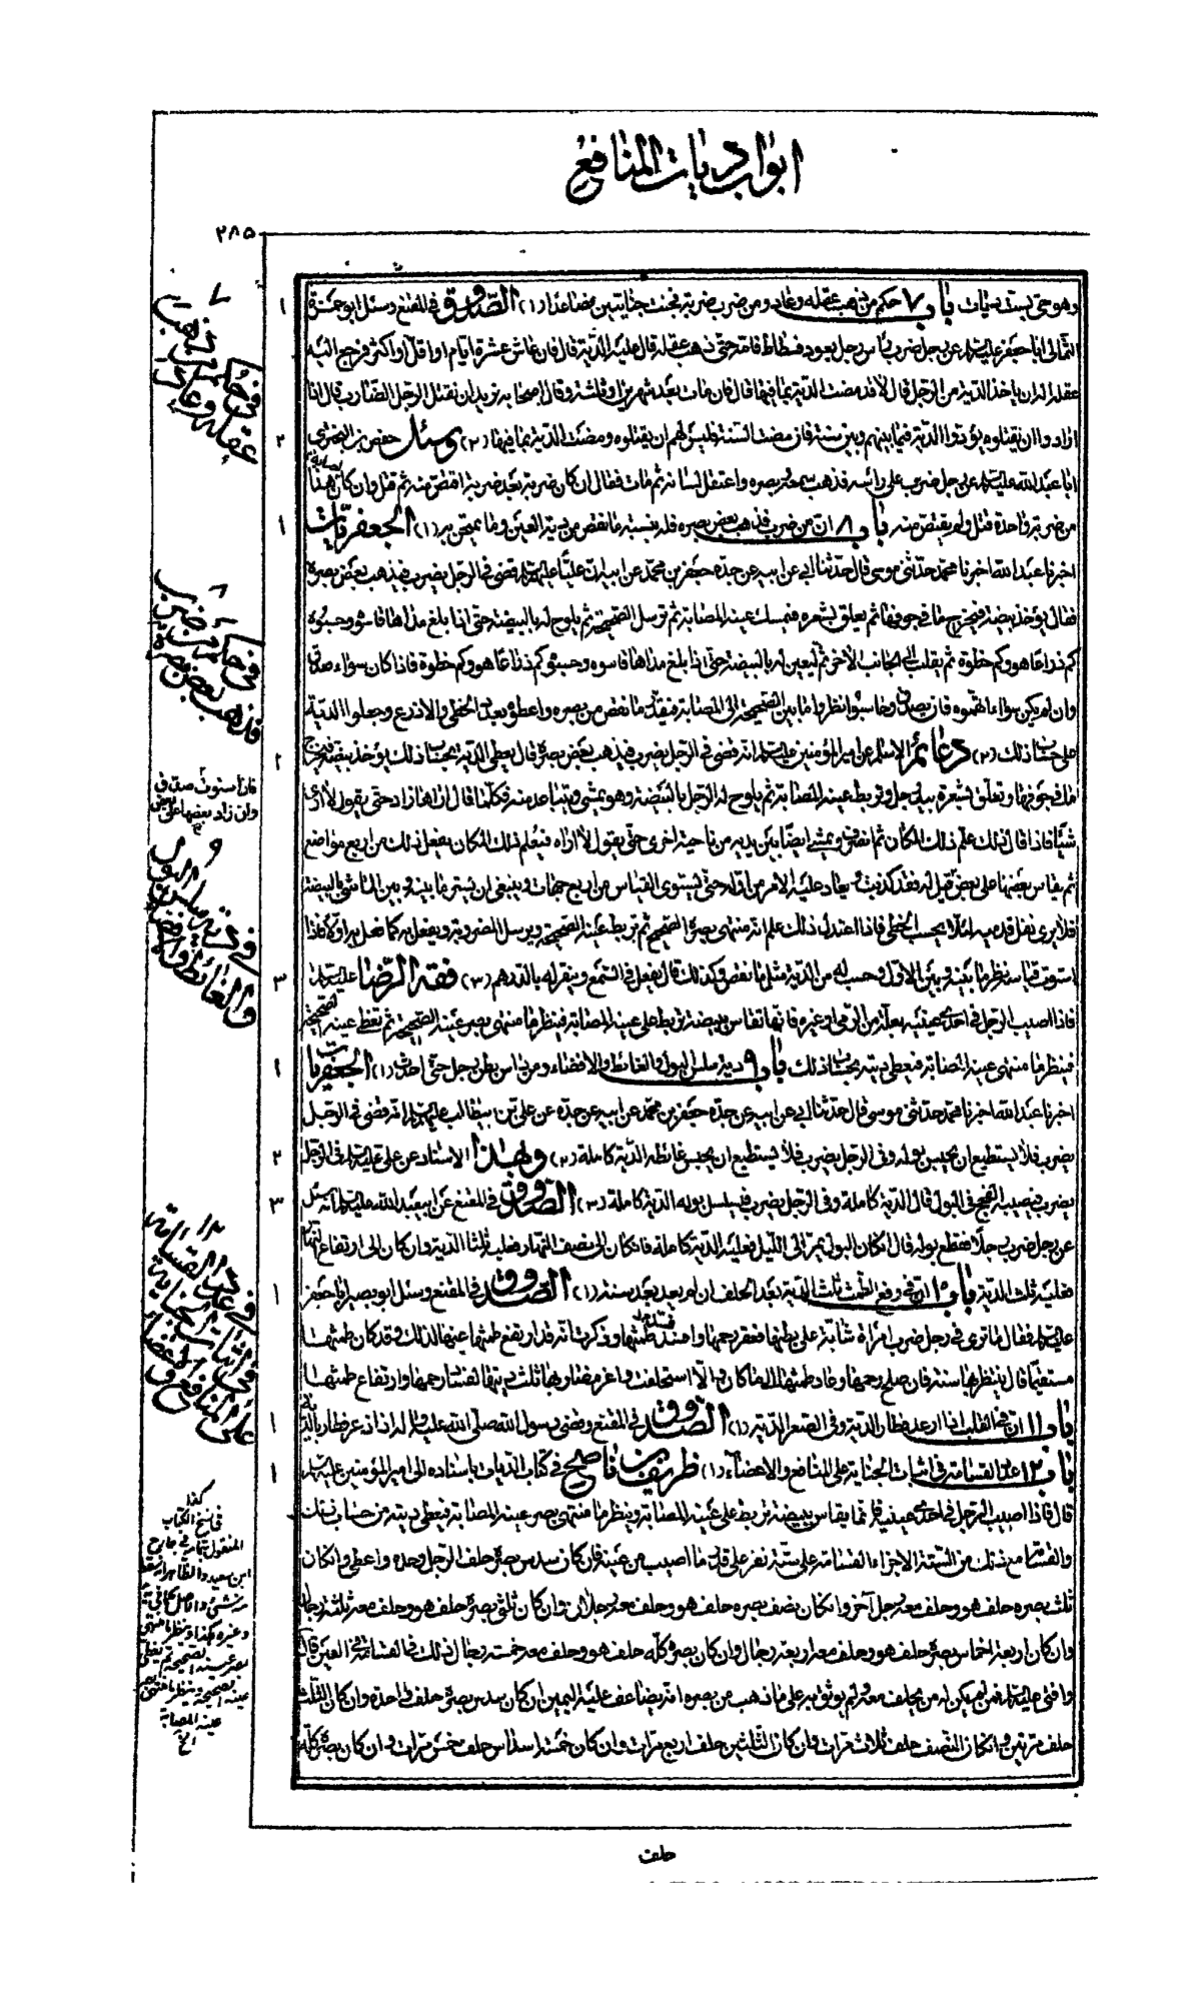 ابواب ديات المنافع
٢٨۵
وهو حى بست ديات باب ٧ حكم من ذهب عقله وعاد ومن ضرب ضربة فجنت جنايتين فصاعدا (١) الصدوق في المقنع وسئل ابو حمزة
الثمالى ابا جعفر عليه السلام عن رجل ضرب رأس رجل بعود فسطاط فامه حتى ذهب عقله قال عليه الدية قال فان عاش عشرة ايام او اقل او اكثر فرجع اليه
عقله اله ان ياخذ الدية من الرجل قال لا قد مضت الدية بما فيها قال فان مات بعد شهرين او ثلثة وقال اصحابه نريد ان نقتل الرجل الضارب قال اذا
ارادوا ان يقتلوه يؤدوا الدية فيما بينهم وبين سنة فان مضت السنة فليس لهم ان يقتلوه ومضت الدية بما فيها (٢) وسئل حفص بن البخترى
ابا عبد الله عليه السلام عن رجل ضرب على رأسه فذهب سمعه وبصره واعتقل لسانه ثم مات فقال ان كان ضربه ضربة بعد ضربة اقتص منه ثم قتل وان كان اصابه هذا
من ضربة واحدة قتل ولم يقتص منه باب ٨ ان من ضرب فذهب بعض بصره فله بنسبة ما نقص من دية العين وما يمتحن به (١) الجعفريات
اخبرنا عبد الله اخبرنا محمد حدثنى موسى قال حدثنا ابى عن ابيه عن جده جعفر بن محمد عن ابيه ان عليا عليه السلام قضى في الرجل يضرب فيذهب بعض بصره
فقال يؤخذ بيضة فيخرج ما في جوفها ثم يعلق بشعره فيمسك عينه المصابة ثم ترسل الصحيحة ثم يلوح له بالبيضة حتى اذا بلغ مداها قاسوه وحسبوه
كم ذراعا هو وكم خطوة ثم يقلب الى الجانب الاخر ثم ليعين له بالبيضة حتى اذا بلغ مداها قاسوه وحسبوه كم ذراعا هو وكم خطوة فاذا كان سواء صدق
وان لم يكن سواء اتهموه فان يصدق وحاسبوا نظروا ما بين الصحيحة الى المصابة فيقدر ما نقص من بصره واعطوه بعدد الخطى والاذرع وجعلوا الدية
على حساب ذلك (٢) دعائم الاسلام عن امير المؤمنين عليه السلام انه قضى في الرجل يضرب فيذهب بعض بصره قال يعطى الدية بحساب ذلك يؤخذ بيضة فيخرج
ما في جوفها وتعلق بشعرة بيد رجل وتربط عينه المصابة ثم يلوح له الرجل بالبيضة وهو يمشى ويتباعد منه فكلما قال اراها زاد حتى يقول لا ارى
شيئا فاذا قال ذلك علم ذلك المكان ثم يمشى ايضا بين يديه من ناحية اخرى حتى يقول لا اراه فيعلم ذلك المكان يفعل ذلك من اربع مواضع
ثم يقاس بعضها على بعض قيل له فقد كذبت ويعاد عليه الامر من اوله حتى يستوى القياس من اربع جهات وينبغى ان يستر ما بينه وبين الماشى بالبيضة
فلا يرى نقل قدميه لئلا يحسب الخطى فاذا اعتدل ذلك علم انه منتهى بصره الصحيح ثم تربط عينه الصحيحة ويرسل المضروبة ويفعل به كما فعل به اولا فاذا
استوت قياسه نظر ما بينه وبين الاول وحسب له من الدية مثل ما نقص وكذلك قال يفعل في السمع وينقر له بالدرهم (٣) فقه الرضا عليه السلام
فاذا اصيب الرجل في احدى عينيه بعلة من الرمى او غيره فانها تقاس ببيضة تربط على عينه المصابة فينظر ما منتهى بصر عينه الصحيحة ثم تغطى عينه الصحيحة
فينظر ما منتهى عينه المصابة فيعطى ديته بحساب ذلك باب ٩ دية سلس البول والغائط والافضاء ومن داس بطن رجل حتى احدث (١) الجعفريات
اخبرنا عبد الله اخبرنا محمد حدثنى موسى قال حدثنا ابى عن ابيه عن جده جعفر بن محمد عن ابيه عن جده عن على بن ابيطالب عليه السلام انه قضى في الرجل
يضرب فلا يستطيع ان يحبس بوله وفى الرجل يضرب فلا يستطيع ان يحبس غائطه الدية كاملة (٢) وبهذا الاسناد عن على عليه السلام في الرجل
يضرب فيصيبه الفجج في البول قال الدية كاملة وفى الرجل يضرب فيسلس بوله الدية كاملة (٣) الصدوق في المقنع عن ابيعبد الله عليه السلام انه سئل
عن رجل ضرب رجلا فقطع بوله قال ان كان البول يمر الى الليل فعليه الدية كاملة فان كان الى نصف النهار فعليه ثلثا الدية وان كان الى ارتفاع النهار
فعليه ثلث الدية باب ١٠ ان في رفع الطمث ثلث الدية بعد الحلف ان لم يعد بعد سنة (١) الصدوق في المقنع وسئل ابو بصير ابا جعفر
عليه السلام فقال ما ترى في رجل ضرب امرأة شابة على بطنها فعقر رحمها وافسد طمثها وذكرت انه قد ارتفع طمثها عنها لذلك وقد كان طمثها
مستقيما قال ينتظر بها سنة فان صلح رحمها وعاد طمثها الى ما كان والا استحلفت واغرم ضاربها ثلث ديتها لفساد رحمها وارتفاع طمثها
باب ١١ ان في القلب اذا ارعد فطار الدية وفى الصعر الدية (١) الصدوق في المقنع وقضى رسول الله صلى الله عليه وآله اذا ذعر فطار بالدية
باب ١٢ عدد القسامة في اثبات الجناية على المنافع والاعضاء (١) ظريف بن ناصح في كتاب الديات باسناده الى امير المؤمنين عليه السلام
قال فاذا اصيب الرجل في احدى عينيه فانما يقاس ببيضة تربط على عينه المصابة وينظر ما منتهى بصر عينه المصابة فيعطى ديته من حساب ذلك
والقسامة مع ذلك من الستة الاجزاء القسامة على ستة نفر على قدر ما اصيب من عينه فان كان سدس بصره حلف الرجل وحده واعطى وان كان
ثلث بصره حلف هو وحلف معه رجل آخر وان كان نصف بصره حلف هو وحلف معه رجلان وان كان ثلثى بصره حلف هو وحلف معه ثلثة رجال
وان كان اربعة اخماس بصره حلف هو وحلف معه اربعة رجال وان كان بصره كله حلف هو وحلف معه خمسة رجال ذلك في القسامة في العين قال
وافتى عليه السلام فيمن لم يكن له من يحلف معه ولم يوثق به على ما ذهب من بصره انه يضاعف عليه اليمين ان كان سدس بصره حلف واحدة وان كان الثلث
حلف مرتين وان كان النصف حلف ثلاث مرات وان كان الثلثين حلف اربع مرات وان كان خمسة اسداس حلف خمس مرات وان كان بصره كله
حلف
٧
في حكم من ذهب
عقله وعاد
٨
في حكم من ضرب
فذهب بعض بصره
فاذا استوت صدق
وان زاد بعضها على بعض
٩
في دية سلس البول
والغائط والافضاء
١٢
في عدد القسامة
في اثبات الجناية
على المنافع والاعضاء
كذا
في نسخ الكتاب
عينه المصابة
الخ